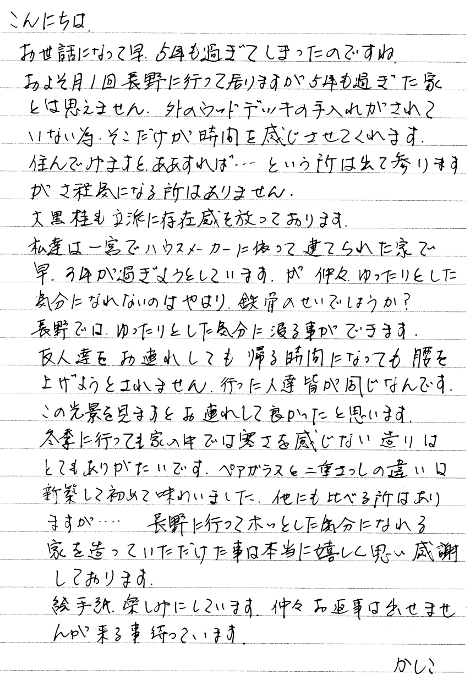 こんにちは。
お世話になって早、5年も過ぎてしまったのですね
およそ月1回長野に行って居りますが5年も過ぎた家
とは思えません。外のウッドデッキの手入れがされて
いない為、そこだけが時間を感じさせてくれます。
住んでみますと、ああすれば…という所は出て参ります
がさ程気になる所はありません。
大黒柱も立派に存在感を放っております。
私達は一宮でハウスメーカーに依って建てられた家で
早、3年が過ぎようとしています。が仲々ゆったりとした
気分になれないのはやはり、鉄骨のせいでしょうか?
長野では、ゆったりとした気分に浸る事ができます。
友人達をお連れしても帰る時間になっても腰を
上げようとされません。行った人達皆が同じなんです。
この光景を見ますとお連れして良かったと思います。
冬季に行っても家の中では寒さを感じない造りは
とてもありがたいです。ペアガラスと二重さっしの違いは
新築して初めて味わいました。他にも比べる所はあり
ますが… 長野に行ってホッとした気分になれる
家を造っていただけた事は本当に嬉しく思い感謝
しております。
絵手紙、楽しみにしています。仲々お返事は出せませ
んが来る事待っています。
かしこ